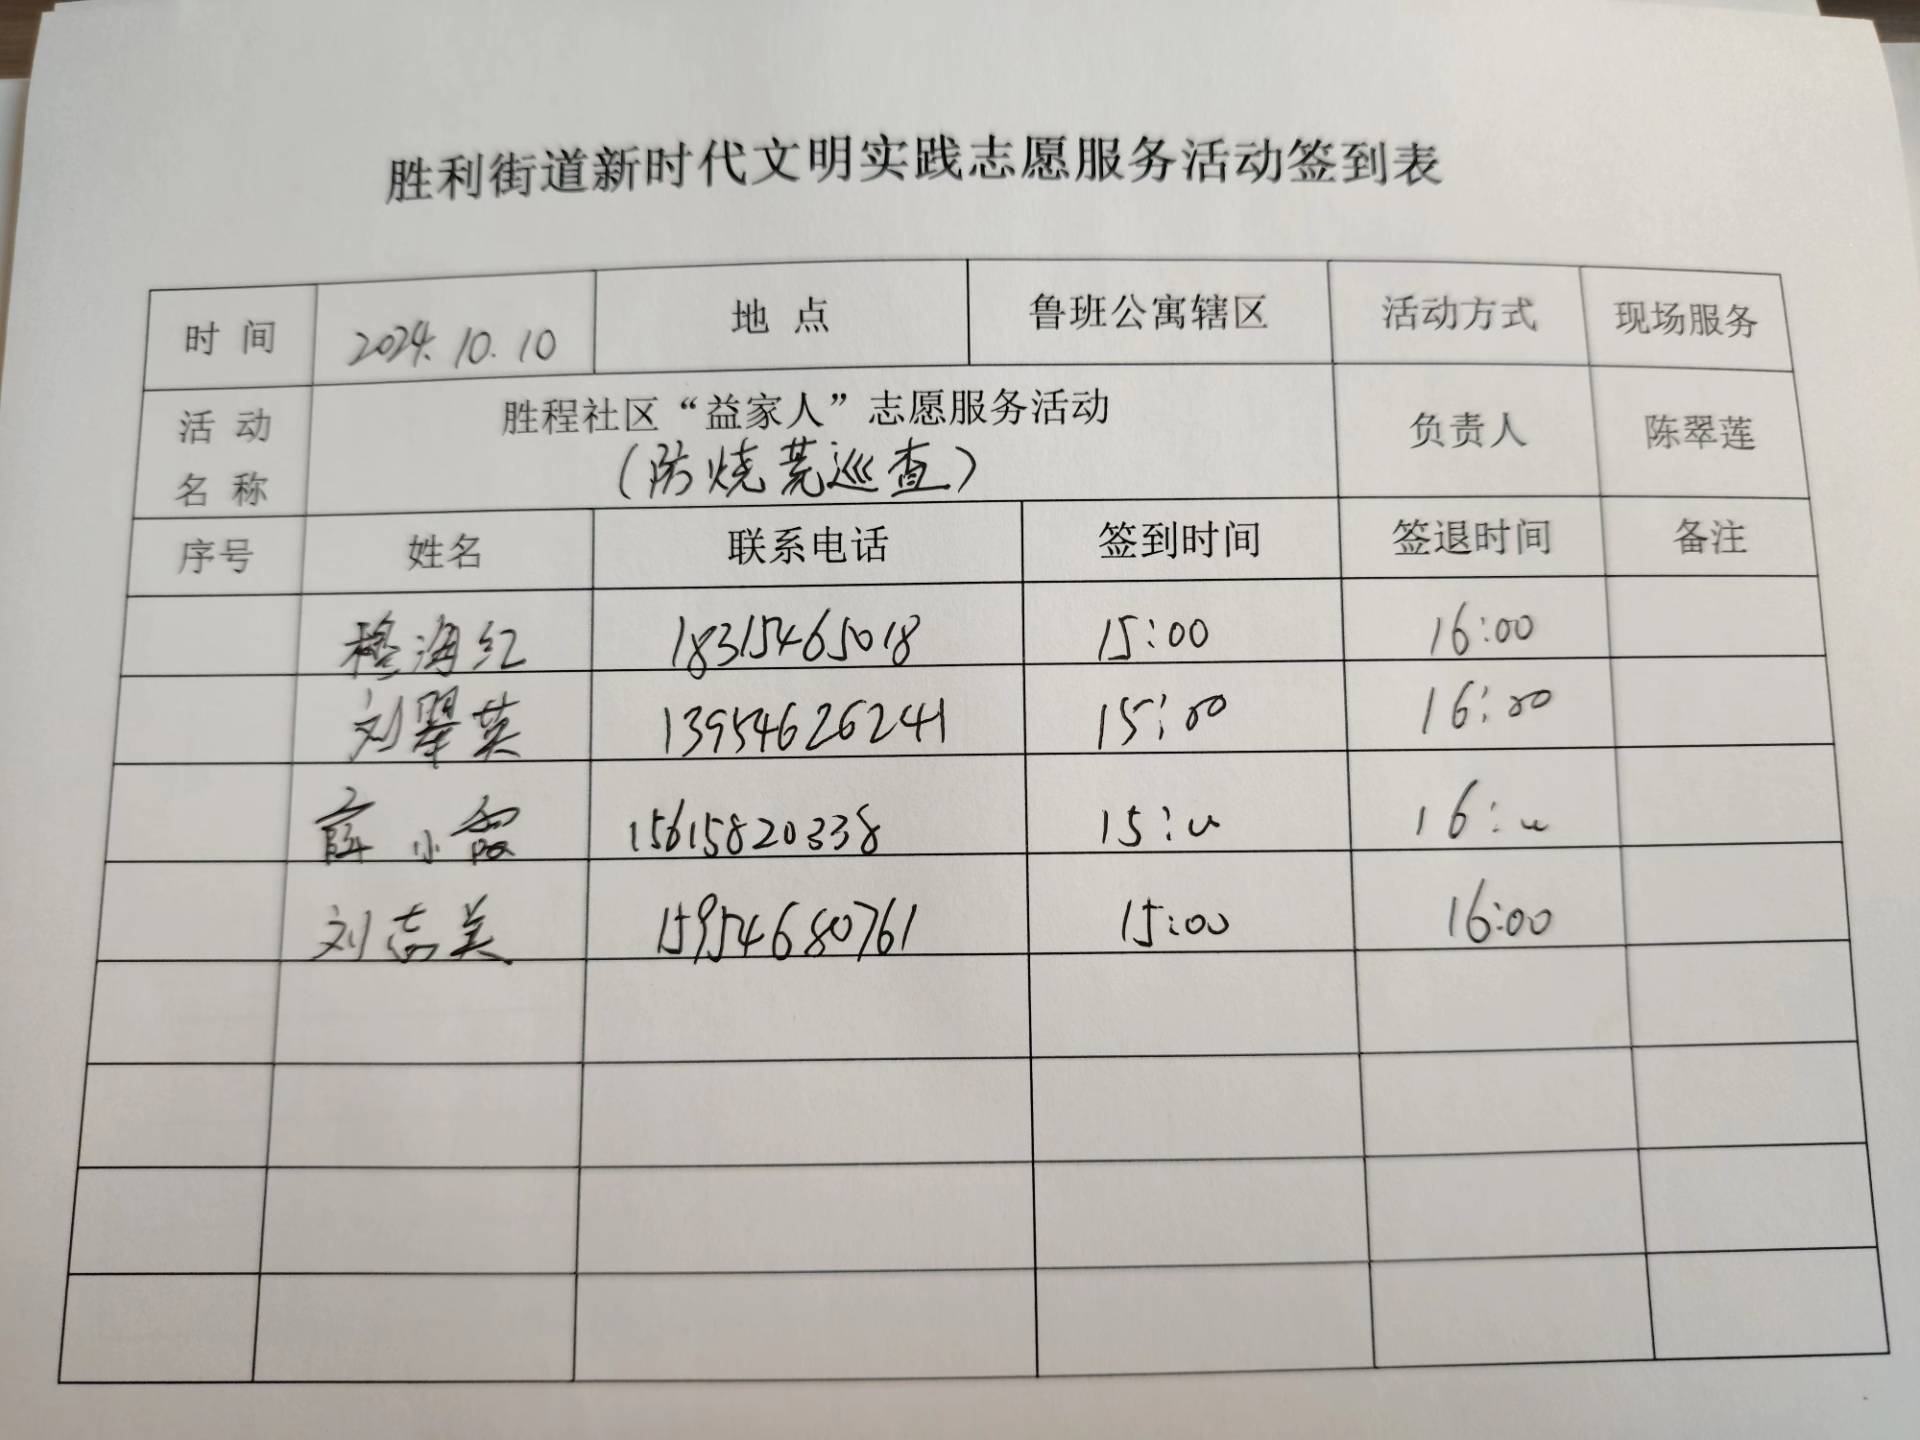 胜利街道新时代文明实践志愿服务活动签到表
时间 2024.10.10 地点 鲁班公寓辖区 活动方式 现场服务
活动名称 胜程社区“益家人”志愿服务活动 负责人 陈翠莲
(防烧荒巡查)
序号 姓名 联系电话 签到时间 签退时间 备注
海红 18315465018 15:00 16:00
刘翠英 13954626241 15:00 16:00
薛小霞 15615820338 15:00 16:00
刘志美 15954680761 15:00 16:00